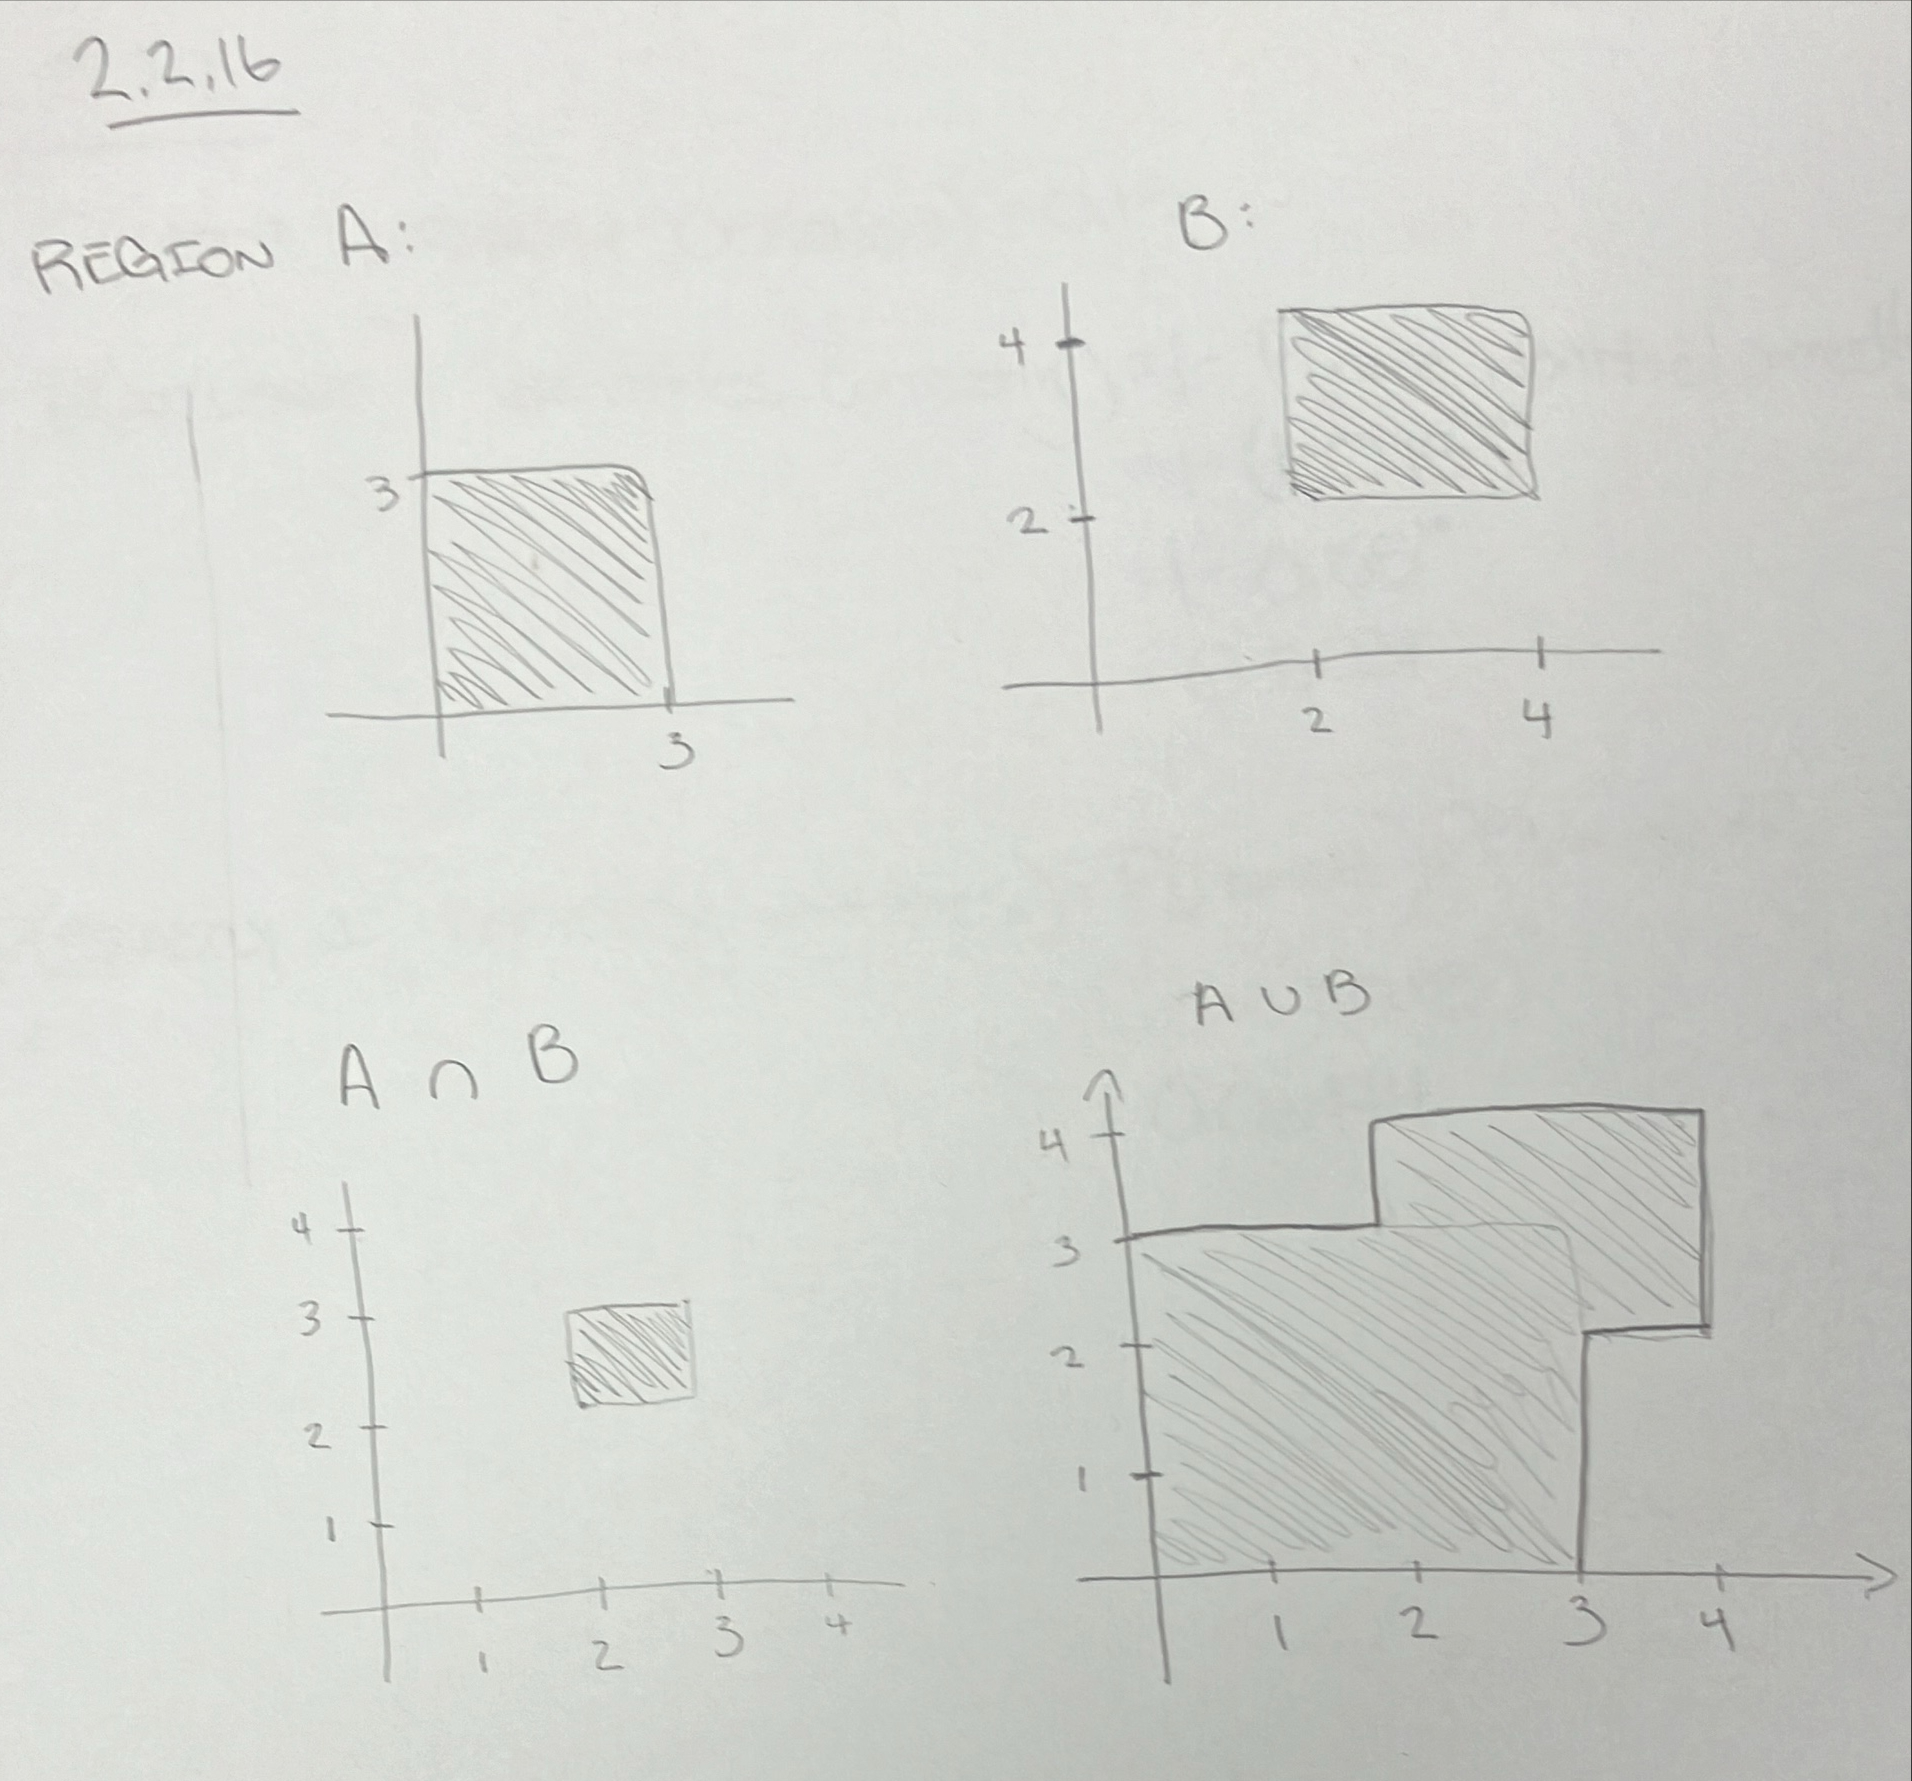 2.2.16
REGION A:
3
3
B:
4
2
2 4
A ∩ B
4
3
2
1
1 2 3 4
A ∪ B
4
3
2
1
1 2 3 4